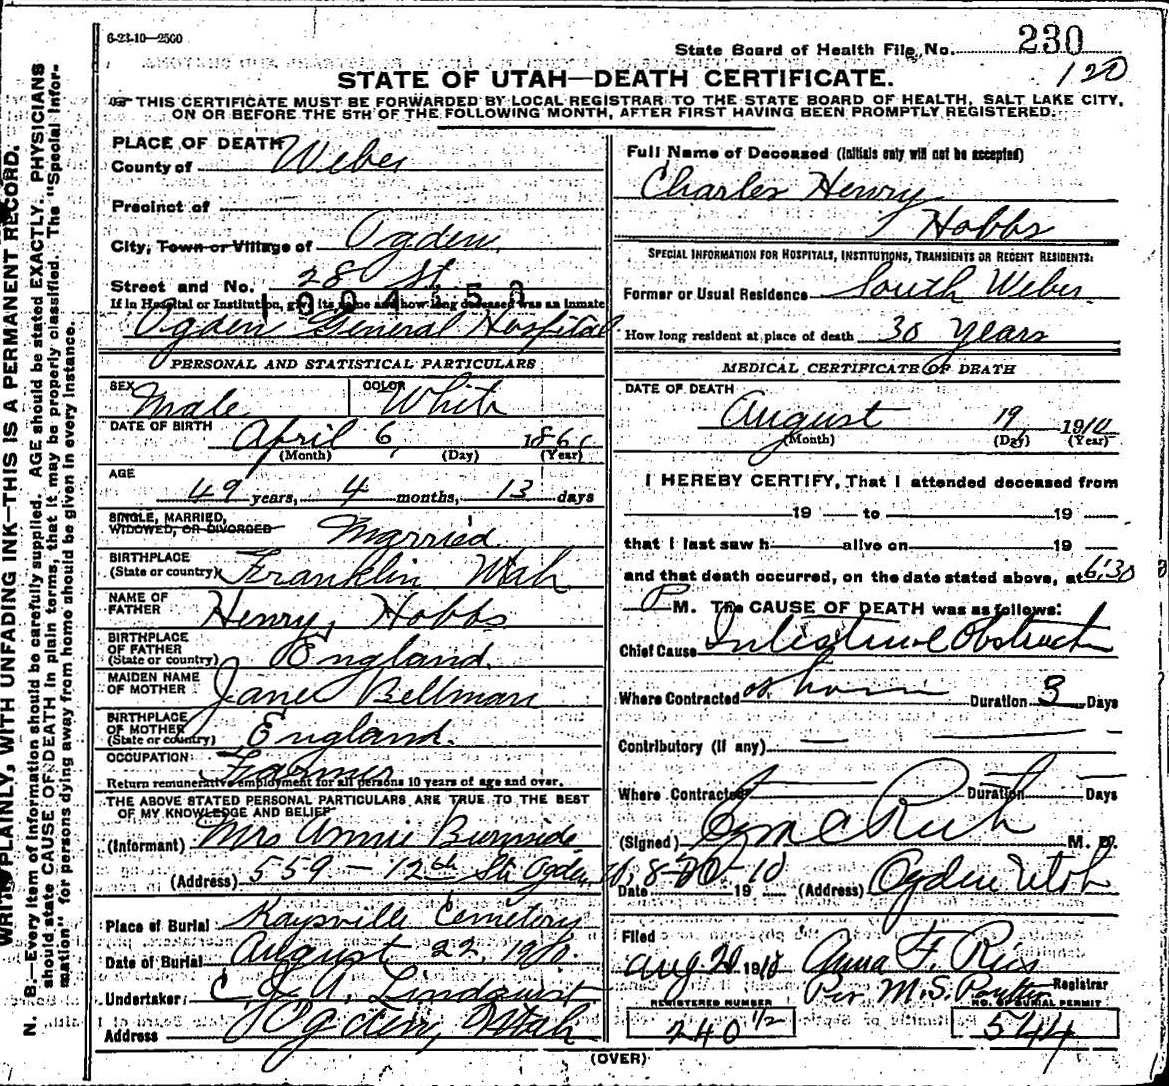 6-23-10—2500
State Board of Health File No. 230
120
STATE OF UTAH—DEATH CERTIFICATE.
☞ THIS CERTIFICATE MUST BE FORWARDED BY LOCAL REGISTRAR TO THE STATE BOARD OF HEALTH, SALT LAKE CITY,
ON OR BEFORE THE 5TH OF THE FOLLOWING MONTH, AFTER FIRST HAVING BEEN PROMPTLY REGISTERED.
WRITE PLAINLY, WITH UNFADING INK—THIS IS A PERMANENT RECORD.
N. B.—Every item of information should be carefully supplied. AGE should be stated EXACTLY. PHYSICIANS
should state CAUSE OF DEATH in plain terms, that it may be properly classified. The "Special Infor-
mation" for persons dying away from home should be given in every instance.
PLACE OF DEATH
County of Weber
Precinct of
City, Town or Village of Ogden
Street and No. 28 St.
If in Hospital or Institution, give its name and how long deceased was an inmate
1004553
Ogden General Hospital
PERSONAL AND STATISTICAL PARTICULARS
SEX Male COLOR White
DATE OF BIRTH
April 6, 186
(Month) (Day) (Year)
AGE
49 years, 4 months, 13 days
SINGLE, MARRIED,
WIDOWED, OR DIVORCED Married
BIRTHPLACE
(State or country) Franklin Utah
NAME OF
FATHER Henry Hobbs
BIRTHPLACE
OF FATHER
(State or country) England
MAIDEN NAME
OF MOTHER Jane Bellman
BIRTHPLACE
OF MOTHER
(State or country) England.
OCCUPATION:
Farmer
Return remunerative employment for all persons 10 years of age and over.
THE ABOVE STATED PERSONAL PARTICULARS ARE TRUE TO THE BEST
OF MY KNOWLEDGE AND BELIEF
(Informant) Mrs Annie Burnside
(Address) 559 - 12th St. Ogden
Place of Burial Kaysville Cemetery
Date of Burial August 22, 1910.
Undertaker: C. J. A. Lindquist
Address Ogden, Utah
Full Name of Deceased (Initials only will not be accepted)
Charles Henry
Hobbs
SPECIAL INFORMATION FOR HOSPITALS, INSTITUTIONS, TRANSIENTS OR RECENT RESIDENTS:
Former or Usual Residence South Weber
How long resident at place of death 30 Years
MEDICAL CERTIFICATE OF DEATH
DATE OF DEATH
August 19, 1910
(Month) (Day) (Year)
I HEREBY CERTIFY, That I attended deceased from
19 to 19
that I last saw h alive on 19
and that death occurred, on the date stated above, at 6:30
P M. The CAUSE OF DEATH was as follows:
Chief Cause Intestinal Obstruct
Where Contracted at home Duration 3 Days
Contributory (if any)
Where Contracted Duration Days
(Signed) M. D.
Date 8-20-10 19 (Address) Ogden Utah
Filed
Aug 20 1910 Anna F. Ries
Registrar
Per M. S.
REGISTERED NUMBER
240 1/2
NO. OF BURIAL PERMIT
544
(OVER)